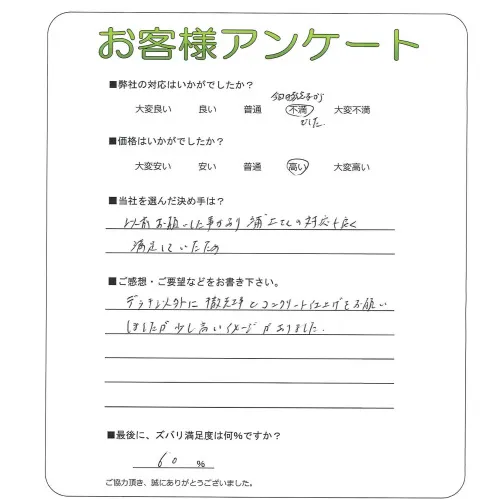 お客様アンケート
■弊社の対応はいかがでしたか？
今回
大変良い 良い 普通 不満 大変不満
でした.
■価格はいかがでしたか？
大変安い 安い 普通 高い 大変高い
■当社を選んだ決め手は？
以前お願いした事があり の対応も良く
満足していた
■ご感想・ご要望などをお書き下さい。
デッキ以外に 工事とコンクリート仕上げをお願い
しましたが少し高いイメージがありました.
■最後に、ズバリ満足度は何%ですか？
60 %
ご協力頂き、誠にありがとうございました。